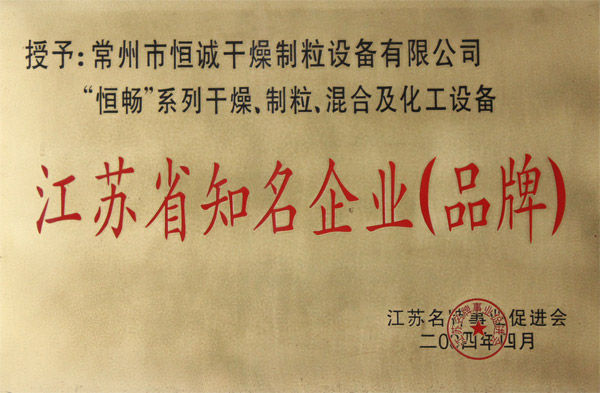 授予：常州市恒诚干燥制粒设备有限公司
“恒畅”系列干燥、制粒、混合及化工设备
江苏省知名企业(品牌)
江苏名牌事业促进会
二00四年四月